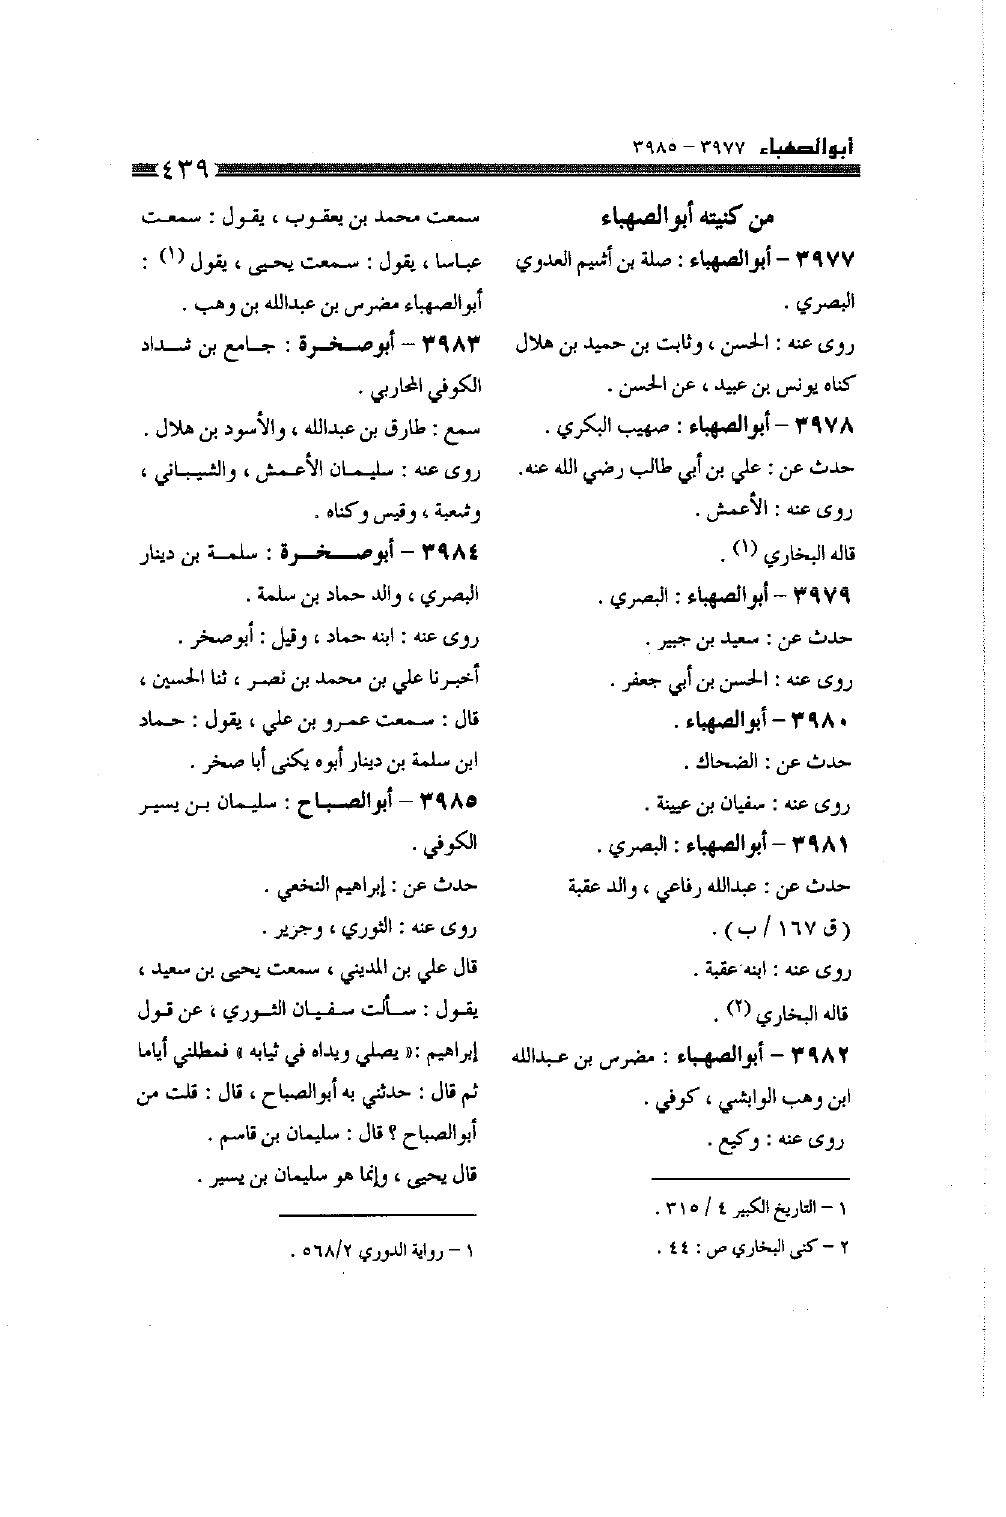 أبوالصهباء ٣٩٧٧ - ٣٩٨٥
٤٣٩
من كنيته أبوالصهباء
٣٩٧٧ - أبوالصهباء : صلة بن أشيم العدوي
البصري .
روى عنه : الحسن ، وثابت بن حميد بن هلال
كناه يونس بن عبيد ، عن الحسن .
٣٩٧٨ - أبوالصهباء : صهيب البكري .
حدث عن : علي بن أبي طالب رضي الله عنه.
روى عنه : الأعمش .
قاله البخاري (١) .
٣٩٧٩ - أبوالصهباء : البصري .
حدث عن : سعيد بن جبير .
روى عنه : الحسن بن أبي جعفر .
٣٩٨٠ - أبوالصهباء .
حدث عن : الضحاك .
روى عنه : سفيان بن عيينة .
٣٩٨١ - أبوالصهباء : البصري .
حدث عن : عبدالله رفاعي ، والد عقبة
(ق ١٦٧ / ب) .
روى عنه : ابنه عقبة .
قاله البخاري (٢) .
٣٩٨٢ - أبوالصهباء : مضرس بن عبدالله
ابن وهب الوابشي ، كوفي .
روى عنه : وكيع .
١ - التاريخ الكبير ٤ / ٣١٥ .
٢ - كنى البخاري ص : ٤٤ .
سمعت محمد بن يعقوب ، يقول : سمعت
عباسا ، يقول : سمعت يحيى ، يقول (١) :
أبوالصهباء مضرس بن عبدالله بن وهب .
٣٩٨٣ - أبوصخرة : جامع بن شداد
الكوفي المحاربي .
سمع : طارق بن عبدالله ، والأسود بن هلال .
روى عنه : سليمان الأعمش ، والشيباني ،
وشعبة ، وقيس وكناه .
٣٩٨٤ - أبوصخرة : سلمة بن دينار
البصري ، والد حماد بن سلمة .
روى عنه : ابنه حماد ، وقيل : أبوصخر .
أخبرنا علي بن محمد بن نصر ، ثنا الحسين ،
قال : سمعت عمرو بن علي ، يقول : حماد
ابن سلمة بن دينار أبوه يكنى أبا صخر .
٣٩٨٥ - أبوالصباح : سليمان بن يسير
الكوفي .
حدث عن : إبراهيم النخعي .
روى عنه : الثوري ، وجرير .
قال علي بن المديني ، سمعت يحيى بن سعيد ،
يقول : سألت سفيان الثوري ، عن قول
إبراهيم :« يصلي ويداه في ثيابه » فمطلني أياما
ثم قال : حدثني به أبوالصباح ، قال : قلت من
أبوالصباح ؟ قال : سليمان بن قاسم .
قال يحيى ، وإنما هو سليمان بن يسير .
١ - رواية الدوري ٥٦٨/٢ .